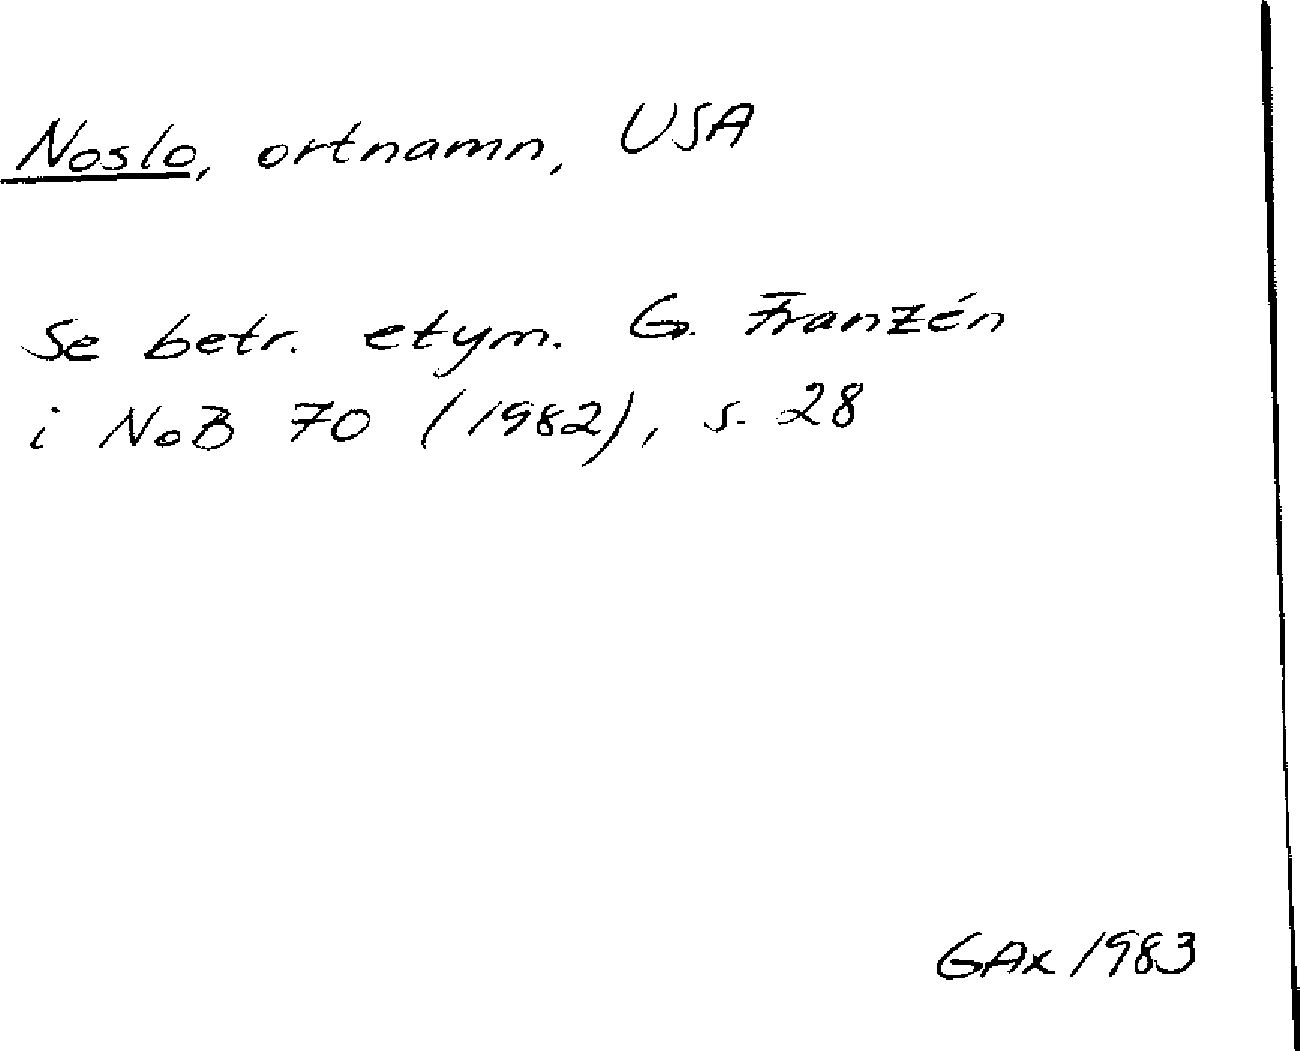 Noslo, ortnamn, USA
Se betr. etym. G. Franzén
i NoB 70 (1982), s. 28
GAx 1983